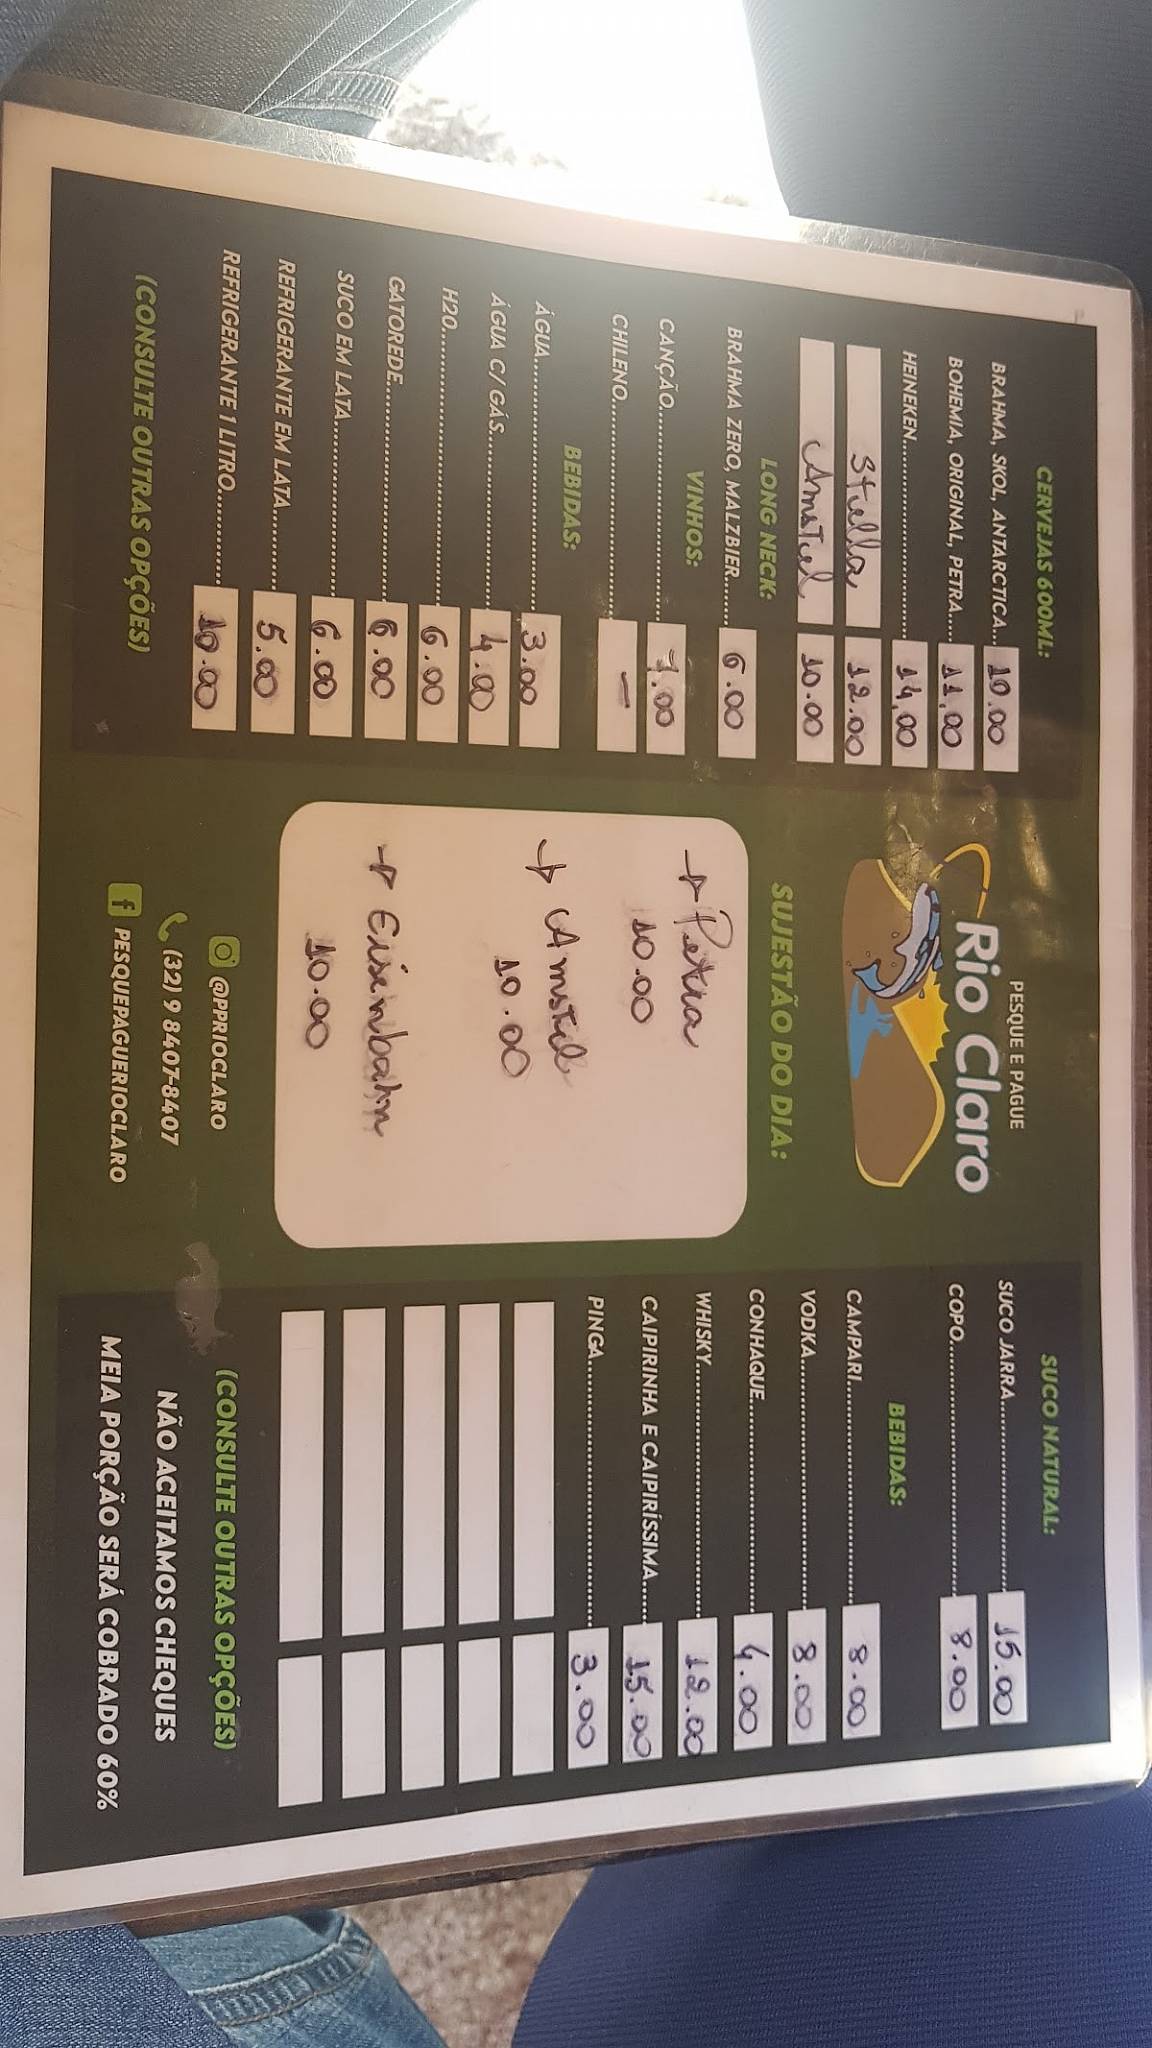 CERVEJAS 600ML:
BRAHMA, SKOL, ANTARCTICA... 10.00
BOHEMIA, ORIGINAL, PETRA.... 11,00
HEINEKEN.............................. 14,00
Stella 12.00
Amstel 10.00
LONG NECK:
BRAHMA ZERO, MALZBIER...... 6.00
VINHOS:
CANÇÃO................................ 7.00
CHILENO................................ —
BEBIDAS:
ÁGUA..................................... 3.00
ÁGUA C/ GÁS......................... 4.00
H2O....................................... 6.00
GATOREDE............................. 6.00
SUCO EM LATA........................ 6.00
REFRIGERANTE EM LATA.......... 5.00
REFRIGERANTE 1 LITRO............ 10.00
(CONSULTE OUTRAS OPÇÕES)
PESQUE E PAGUE
Rio Claro
SUJESTÃO DO DIA:
→ Petra
10.00
→ Amstel
10.00
→ Eisenbahn
10.00
@PPRIOCLARO
(32) 9 8407-8407
f PESQUEPAGUERIOCLARO
SUCO NATURAL:
SUCO JARRA............................ 15.00
COPO...................................... 8.00
BEBIDAS:
CAMPARI................................. 8.00
VODKA.................................... 8.00
CONHAQUE............................. 4.00
WHISKY................................... 12.00
CAIPIRINHA E CAIPIRÍSSIMA..... 15.00
PINGA..................................... 3.00
(CONSULTE OUTRAS OPÇÕES)
NÃO ACEITAMOS CHEQUES
MEIA PORÇÃO SERÁ COBRADO 60%